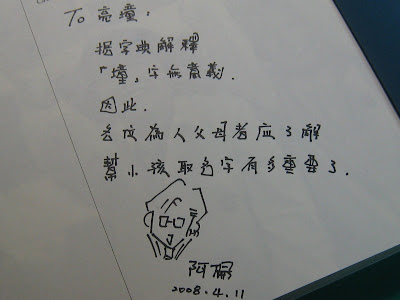 To 亮
據字典解釋
字無意義.
因此.
各位為人父母者应了解
幫小孩取名字有多重要了.
阿
2008.4.11